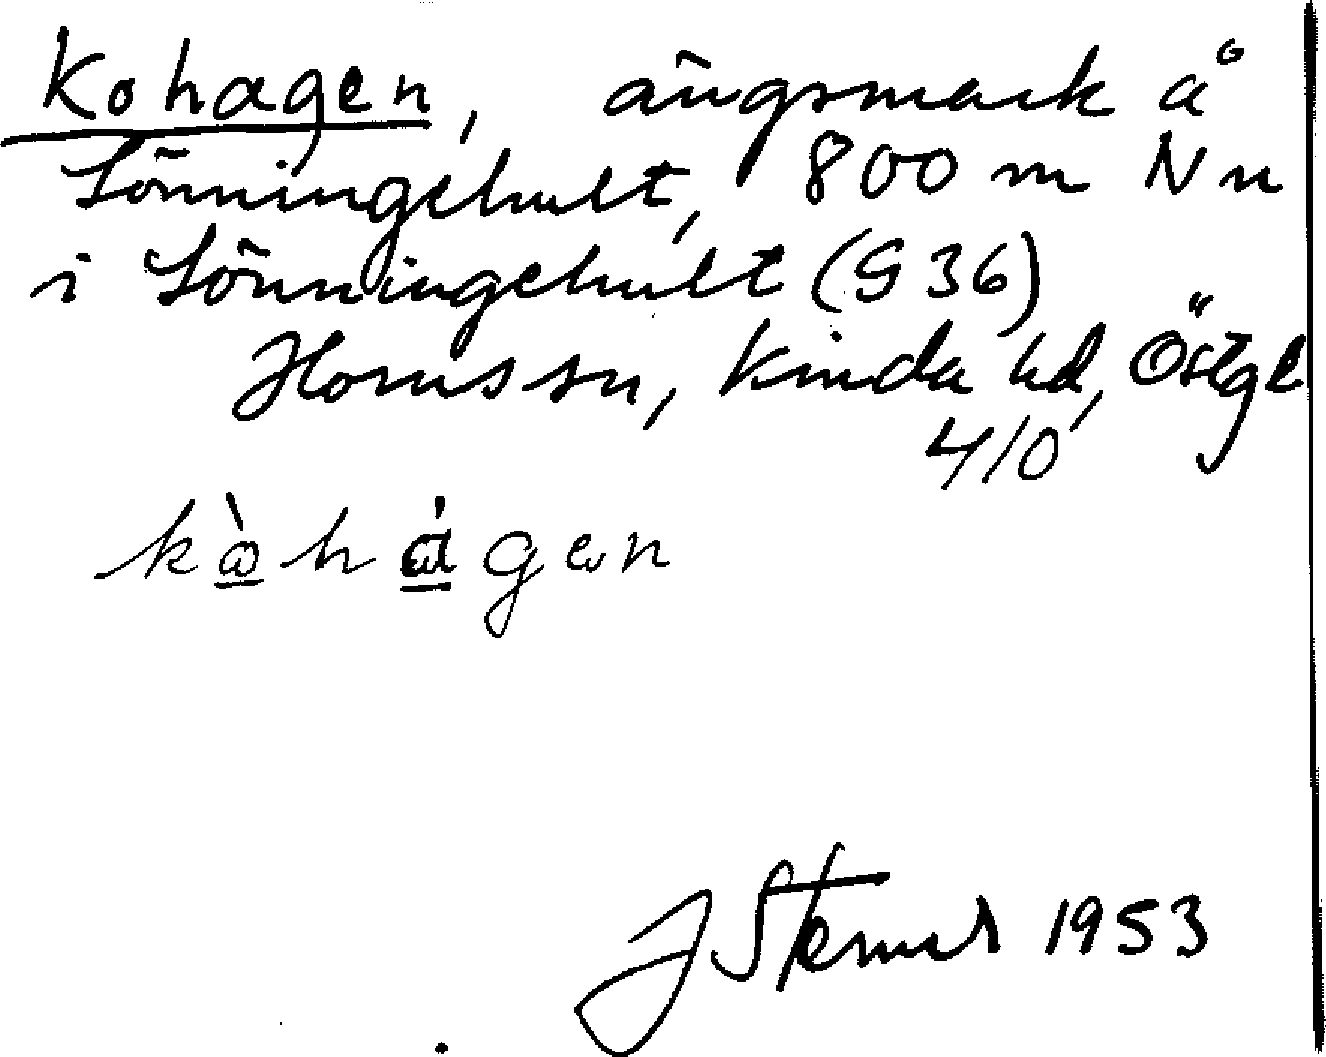 Kohagen, ängsmark å
Lönningehult, 800 m N n
i Lönningehult (G 36)
Horns sn, Kinda hd, Östgl
4/0
kòhágen
J Sterner 1953